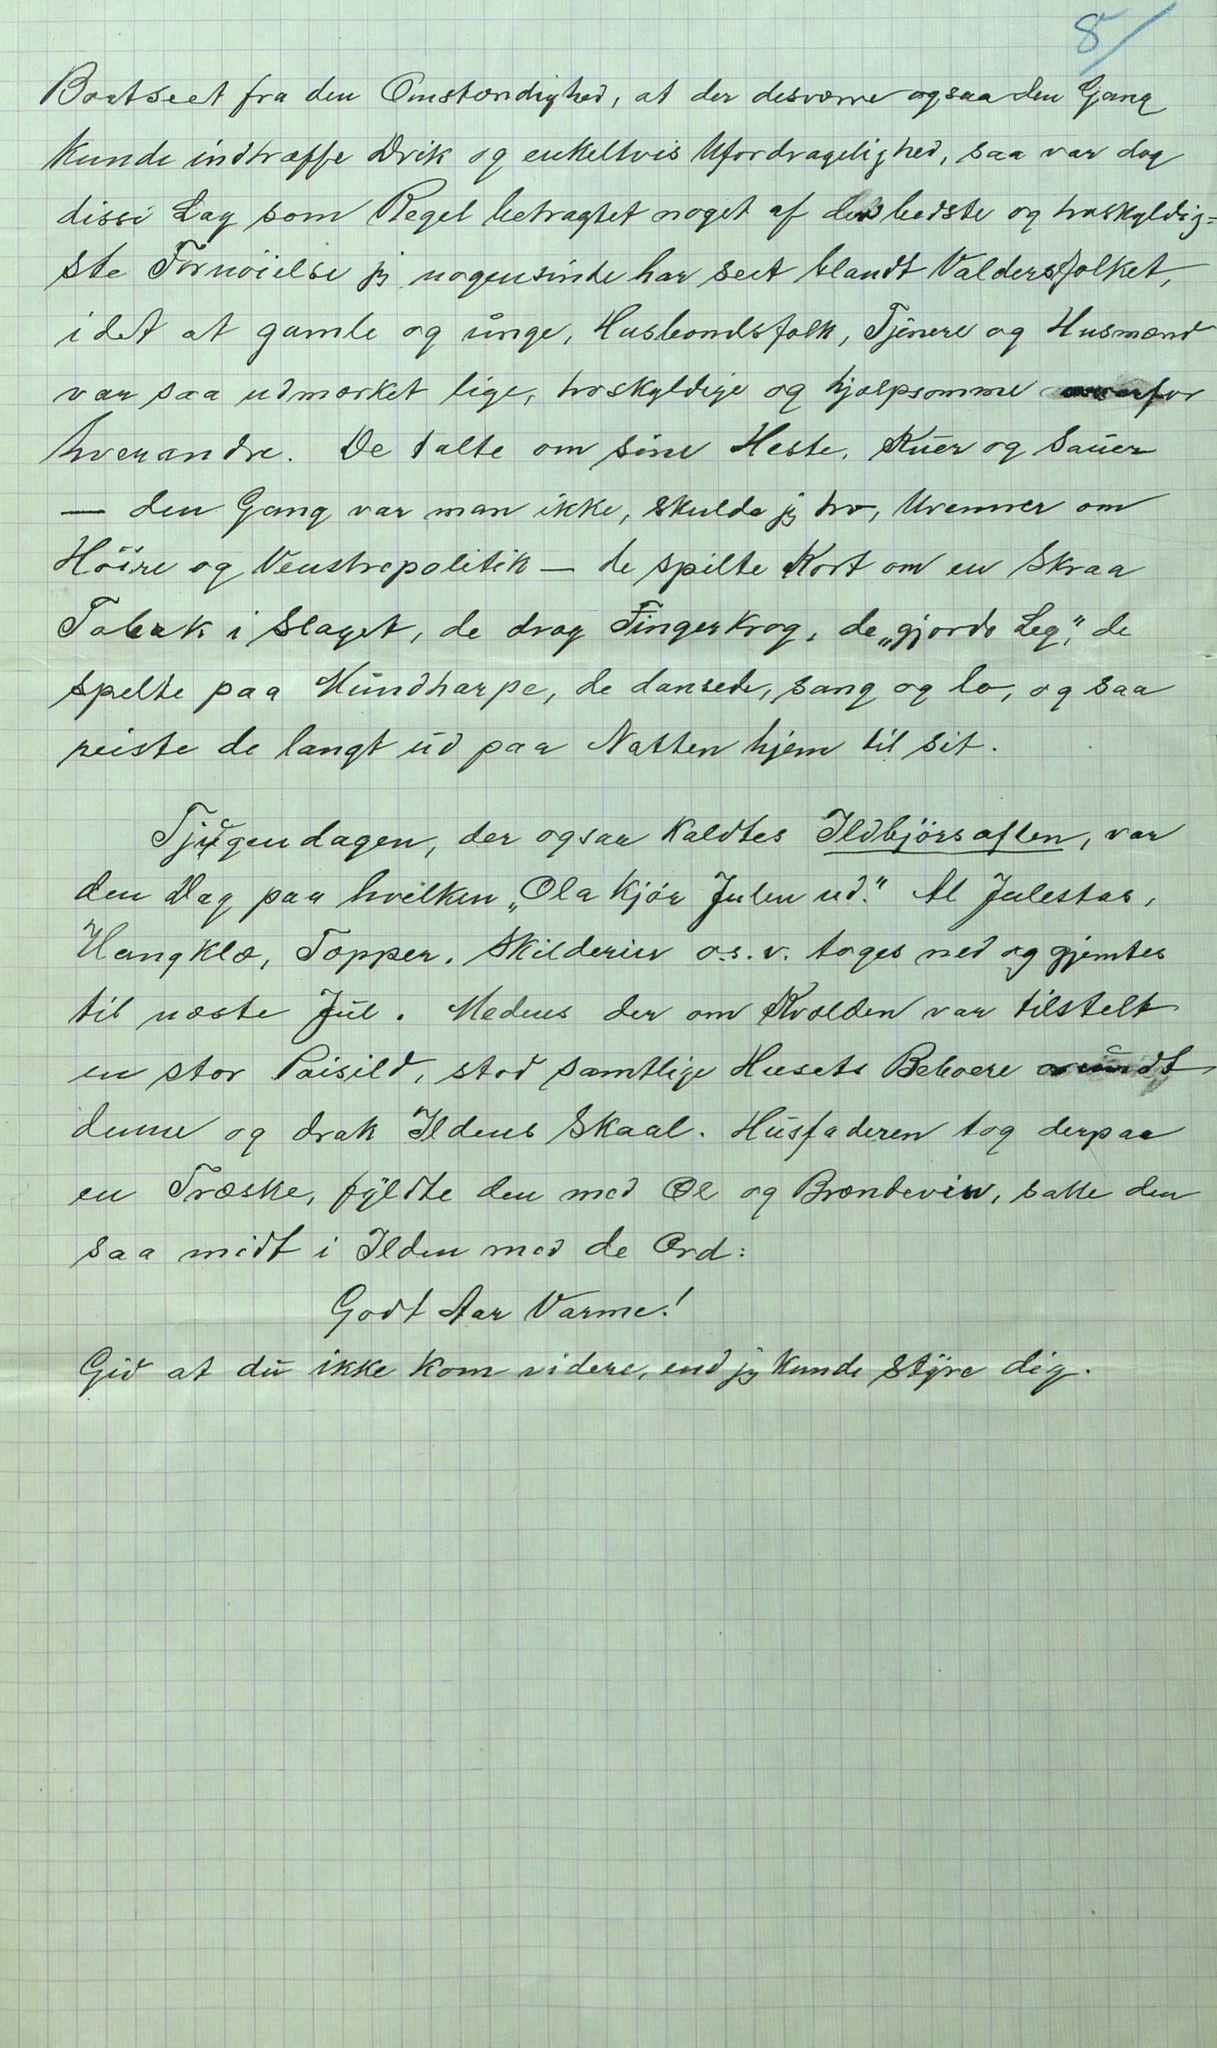 8/
Bortseet fra den Omstændighed, at der desværre ogsaa den Gang
kunde indtræffe Drik og enkeltvis Ufordragelighed, saa var dog
disse Lag som Regel betragtet noget af den bedste og troskyldig=
ste Fornöielse jeg nogensinde har seet blandt Valdersfolket,
idet at gamle og unge, Husbondsfolk, Tjenere og Husmænd
var saa udmærket lige, troskyldige og hjælpsomme overfor
hverandre. De talte om sine Heste, Kuer og Sauer
— den Gang var man ikke, skulde jeg tro, Uvenner om
Höire og Venstrepolitik — de spilte Kort om en Skraa
Tobak i Slaget, de drog Fingerkrog, de „gjorde Leg", de
spelte paa Mundharpe, de dansede, sang og lo, og saa
reiste de langt ud paa Natten hjem til sit.
Tjugendagen, der ogsaa kaldtes Ildbjörsaften, var
den Dag paa hvilken „Ola kjör Julen ud." Al Julestas,
Hangklæ, Topper, Skilderier o.s.v. toges ned og gjemtes
til næste Jul. Medens der om Kvælden var tilstelt
en stor Peisild, stod samtlige Husets Beboere rundt
denne og drak Ildens Skaal. Husfaderen tog derpaa
en Træske, fyldte den med Øl og Brændevin, satte den
saa midt i Ilden med de Ord:
Godt Aar Varme!
Gid at du ikke kom videre, end jeg kunde styre dig.